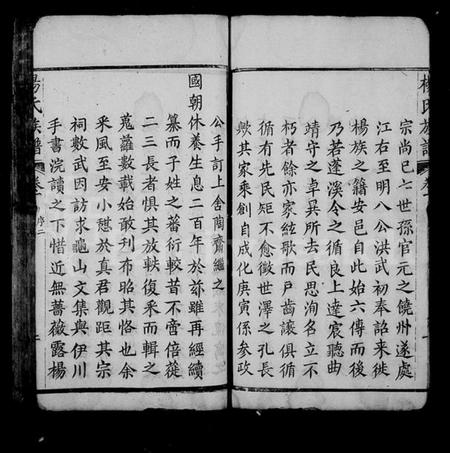 楊氏族譜
宗尚巳七世孫官元之饒州遂處
江右至明八公洪武初奉詔來徙
楊族之籍安邑自此始六傳而後
乃若蓬溪令之循良上達宸聽曲
靖守之卓異所去民思洵名立不
朽者餘亦家絃歌而戶齒讓俱循
循有先民矩不愈徵世澤之孔長
歟共家乘創自成化庚寅係參政
公手訂上舍蘭齋繼之
國朝休養生息二百年於茲雖再經續
纂而子姓之蕃衍較昔不啻倍蓰
二三長者惧其放軼復釆而輯之
蒐羅數載始敢刋布昭其恪也余
釆風至安小憇於真君觀距其宗
祠數武因訪求龜山文集與伊川
手書浣讀之下惜近無薔薇露楊
楊氏族譜 卷一 序二